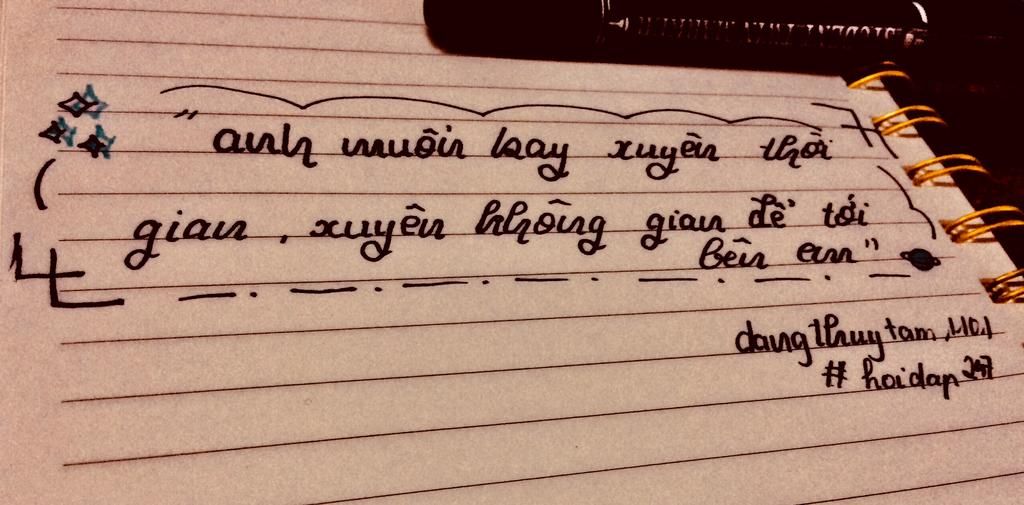 STUDENT TWIN MARKER
"anh muốn bay xuyên thời
gian, xuyên không gian để tới
bên em"
dangthuytam,1101
# hoidap247